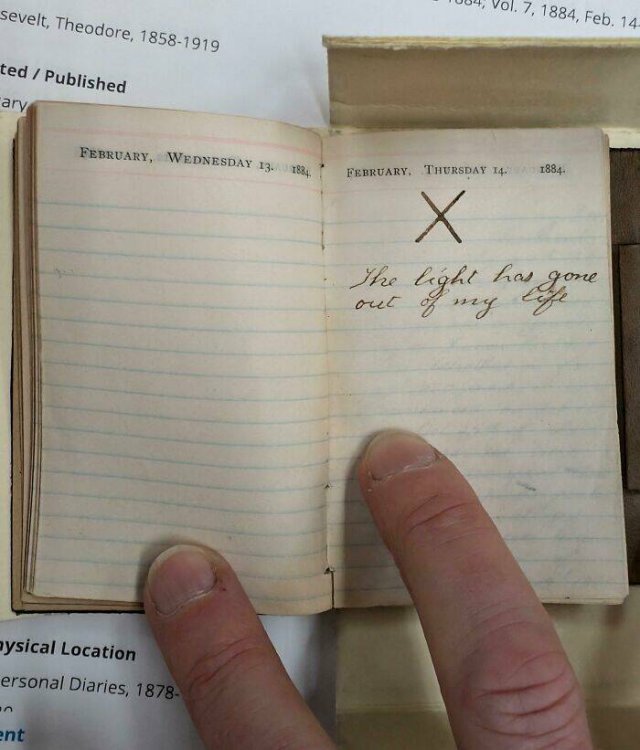 sevelt, Theodore, 1858-1919
1884; Vol. 7, 1884, Feb. 14
ted / Published
ary
FEBRUARY, WEDNESDAY 13. 1884.
FEBRUARY, THURSDAY 14. 1884.
X
The light has gone
out of my life
ysical Location
ersonal Diaries, 1878-
ent